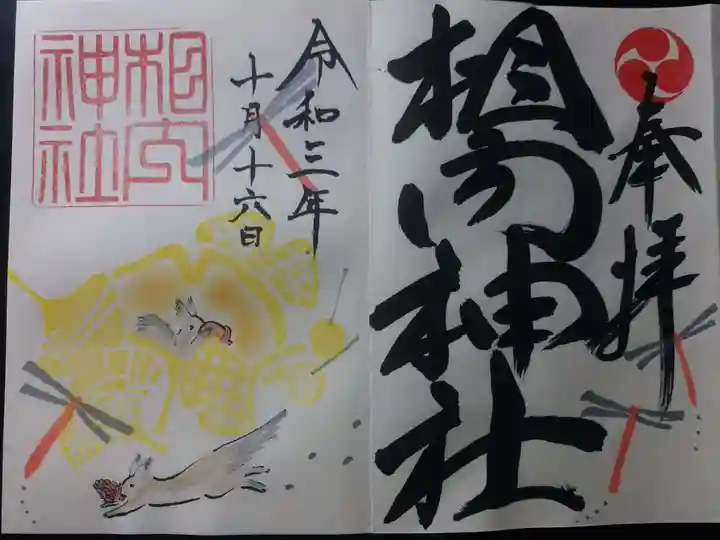 奉拝
相内神社
令和三年
十月十六日
相内
神社